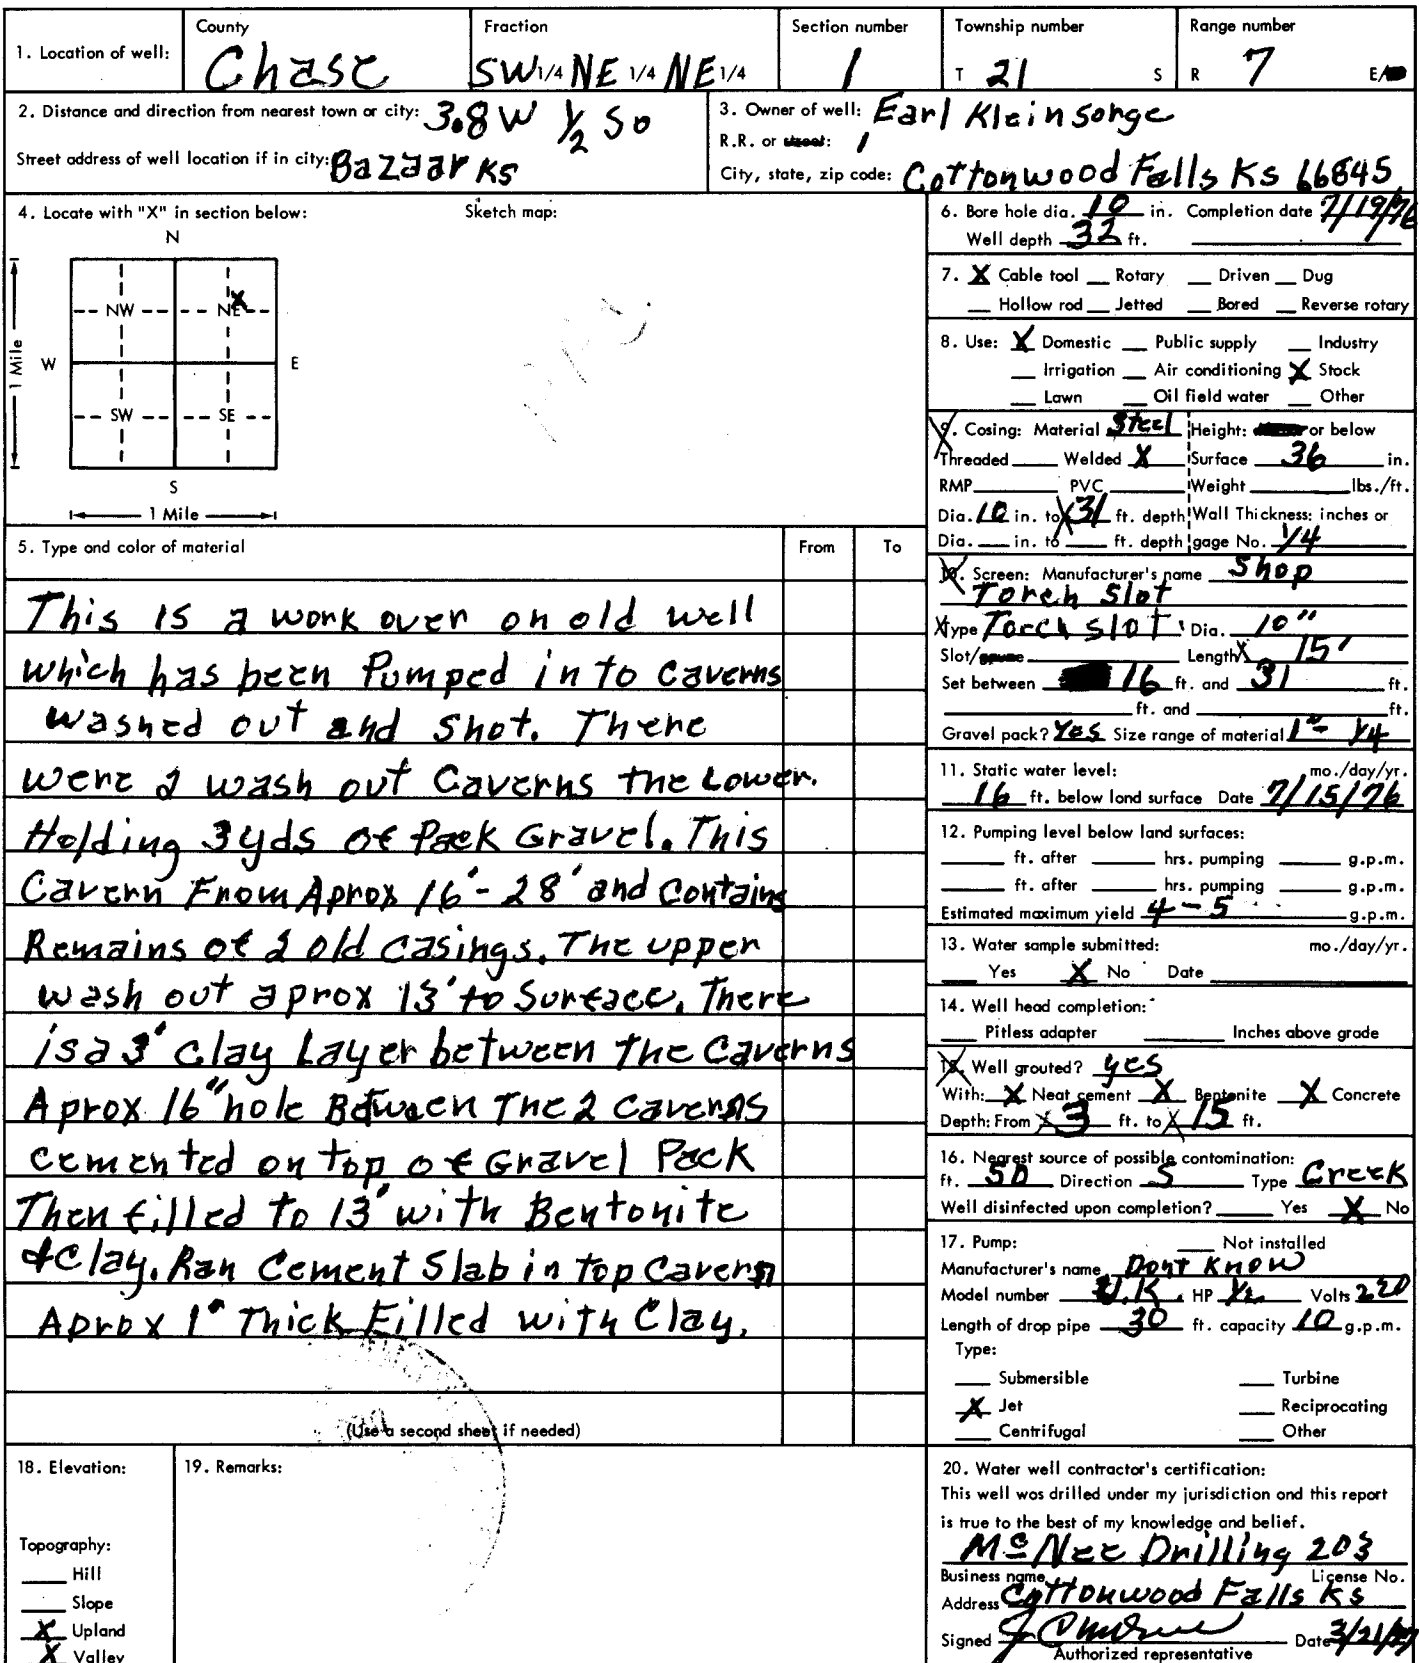 1. Location of well: County Chase Fraction SW 1/4 NE 1/4 NE 1/4 Section number 1 Township number T 21 S Range number R 7 E/
2. Distance and direction from nearest town or city: 3.8 W 1/2 So
Street address of well location if in city: Bazaar Ks
3. Owner of well: Earl Kleinsorge
R.R. or street: 1
City, state, zip code: Cottonwood Falls Ks 66845
4. Locate with "X" in section below: Sketch map:
N
NW NE
X
W E
1 Mile
SW SE
S
1 Mile
5. Type and color of material From To
This is a work over on old well
which has been Pumped in to Caverns
washed out and shot. There
were 2 wash out Caverns the Lower.
Holding 3yds of Pack Gravel. This
Cavern From Aprox 16'-28' and Contains
Remains of 2 old casings. The upper
wash out aprox 13' to Surface. There
is a 3' clay Layer between the Caverns
Aprox 16" hole Between The 2 caverns
cemented on top of Gravel Pack
Then filled to 13' with Bentonite
& Clay. Ran Cement Slab in top Cavern
Aprox 1' Thick Filled with Clay.
(Use a second sheet if needed)
6. Bore hole dia. 10 in. Completion date 7/19/76
Well depth 32 ft.
7. X Cable tool Rotary Driven Dug
Hollow rod Jetted Bored Reverse rotary
8. Use: X Domestic Public supply Industry
Irrigation Air conditioning X Stock
Lawn Oil field water Other
9. Casing: Material Steel Height: or below
Threaded Welded X Surface 36 in.
RMP PVC Weight lbs./ft.
Dia. 10 in. to 31 ft. depth Wall Thickness: inches or
Dia. in. to ft. depth gage No. 1/4
10. Screen: Manufacturer's name Shop
Torch Slot
Type Torch slot Dia. 10"
Slot/gauze Length 15'
Set between 16 ft. and 31 ft.
ft. and ft.
Gravel pack? Yes Size range of material 1" - 1/4
11. Static water level: mo./day/yr.
16 ft. below land surface Date 7/15/76
12. Pumping level below land surfaces:
ft. after hrs. pumping g.p.m.
ft. after hrs. pumping g.p.m.
Estimated maximum yield 4-5 g.p.m.
13. Water sample submitted: mo./day/yr.
Yes X No Date
14. Well head completion:
Pitless adapter Inches above grade
15. Well grouted? yes
With: X Neat cement X Bentonite X Concrete
Depth: From 3 ft. to 15 ft.
16. Nearest source of possible contamination:
ft. 50 Direction S Type Creek
Well disinfected upon completion? Yes X No
17. Pump: Not installed
Manufacturer's name Dont Know
Model number U.K. HP 1/2 Volts 220
Length of drop pipe 30 ft. capacity 10 g.p.m.
Type:
Submersible Turbine
X Jet Reciprocating
Centrifugal Other
18. Elevation:
Topography:
Hill
Slope
X Upland
X Valley
19. Remarks:
20. Water well contractor's certification:
This well was drilled under my jurisdiction and this report
is true to the best of my knowledge and belief.
McNee Drilling 203
Business name License No.
Address Cottonwood Falls Ks
Signed Date 3/21/77
Authorized representative